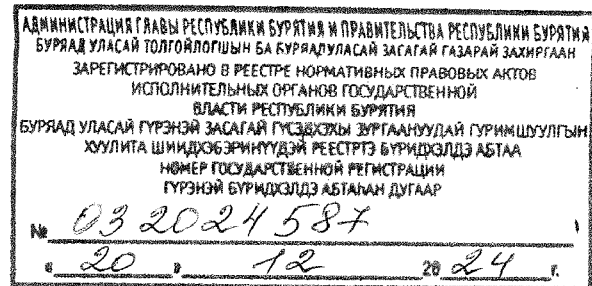 АДМИНИСТРАЦИЯ ГЛАВЫ РЕСПУБЛИКИ БУРЯТИЯ И ПРАВИТЕЛЬСТВА РЕСПУБЛИКИ БУРЯТИЯ
БУРЯАД УЛАСАЙ ТОЛГОЙЛОГШЫН БА БУРЯАД УЛАСАЙ ЗАСАГАЙ ГАЗАРАЙ ЗАХИРГААН
ЗАРЕГИСТРИРОВАНО В РЕЕСТРЕ НОРМАТИВНЫХ ПРАВОВЫХ АКТОВ
ИСПОЛНИТЕЛЬНЫХ ОРГАНОВ ГОСУДАРСТВЕННОЙ
ВЛАСТИ РЕСПУБЛИКИ БУРЯТИЯ
БУРЯАД УЛАСАЙ ГҮРЭНЭЙ ЗАСАГАЙ ГҮЙСЭДХЭХЫ ЗУРГААНУУДАЙ ГУРИМШУУЛГЫН
ХУУЛИТА ШИИДХЭБЭРИНҮҮДЭЙ РЕЕСТРТЭ БҮРИДХЭЛДЭ АБТАА
НОМЕР ГОСУДАРСТВЕННОЙ РЕГИСТРАЦИИ
ГҮРЭНЭЙ БҮРИДХЭЛДЭ АБТАҺАН ДУГААР
№ 032024587
« 20 » 12 20 24 г.